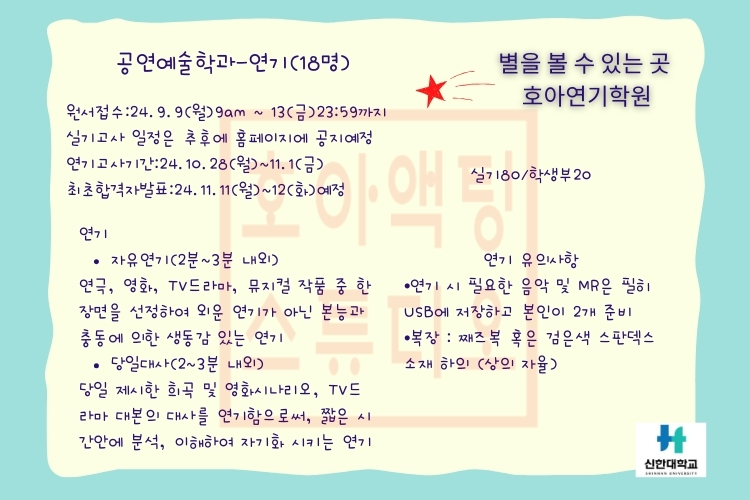 공연예술학과-연기(18명)
별을 볼 수 있는 곳
호아연기학원
원서접수:24.9.9(월)9am ~ 13(금)23:59까지
실기고사 일정은 추후에 홈페이지에 공지예정
연기고사기간:24.10.28(월)~11.1(금)
최초합격자발표:24.11.11(월)~12(화)예정
실기80/학생부20
연기
• 자유연기(2분~3분 내외)
연극, 영화, TV드라마, 뮤지컬 작품 중 한
장면을 선정하여 외운 연기가 아닌 본능과
충동에 의한 생동감 있는 연기
• 당일대사(2~3분 내외)
당일 제시한 희곡 및 영화시나리오, TV드
라마 대본의 대사를 연기함으로써, 짧은 시
간안에 분석, 이해하여 자기화 시키는 연기
연기 유의사항
•연기 시 필요한 음악 및 MR은 필히
USB에 저장하고 본인이 2개 준비
•복장 : 째즈복 혹은 검은색 스판덱스
소재 하의 (상의 자율)
호아액팅
스튜디오
신한대학교
SHINHAN UNIVERSITY